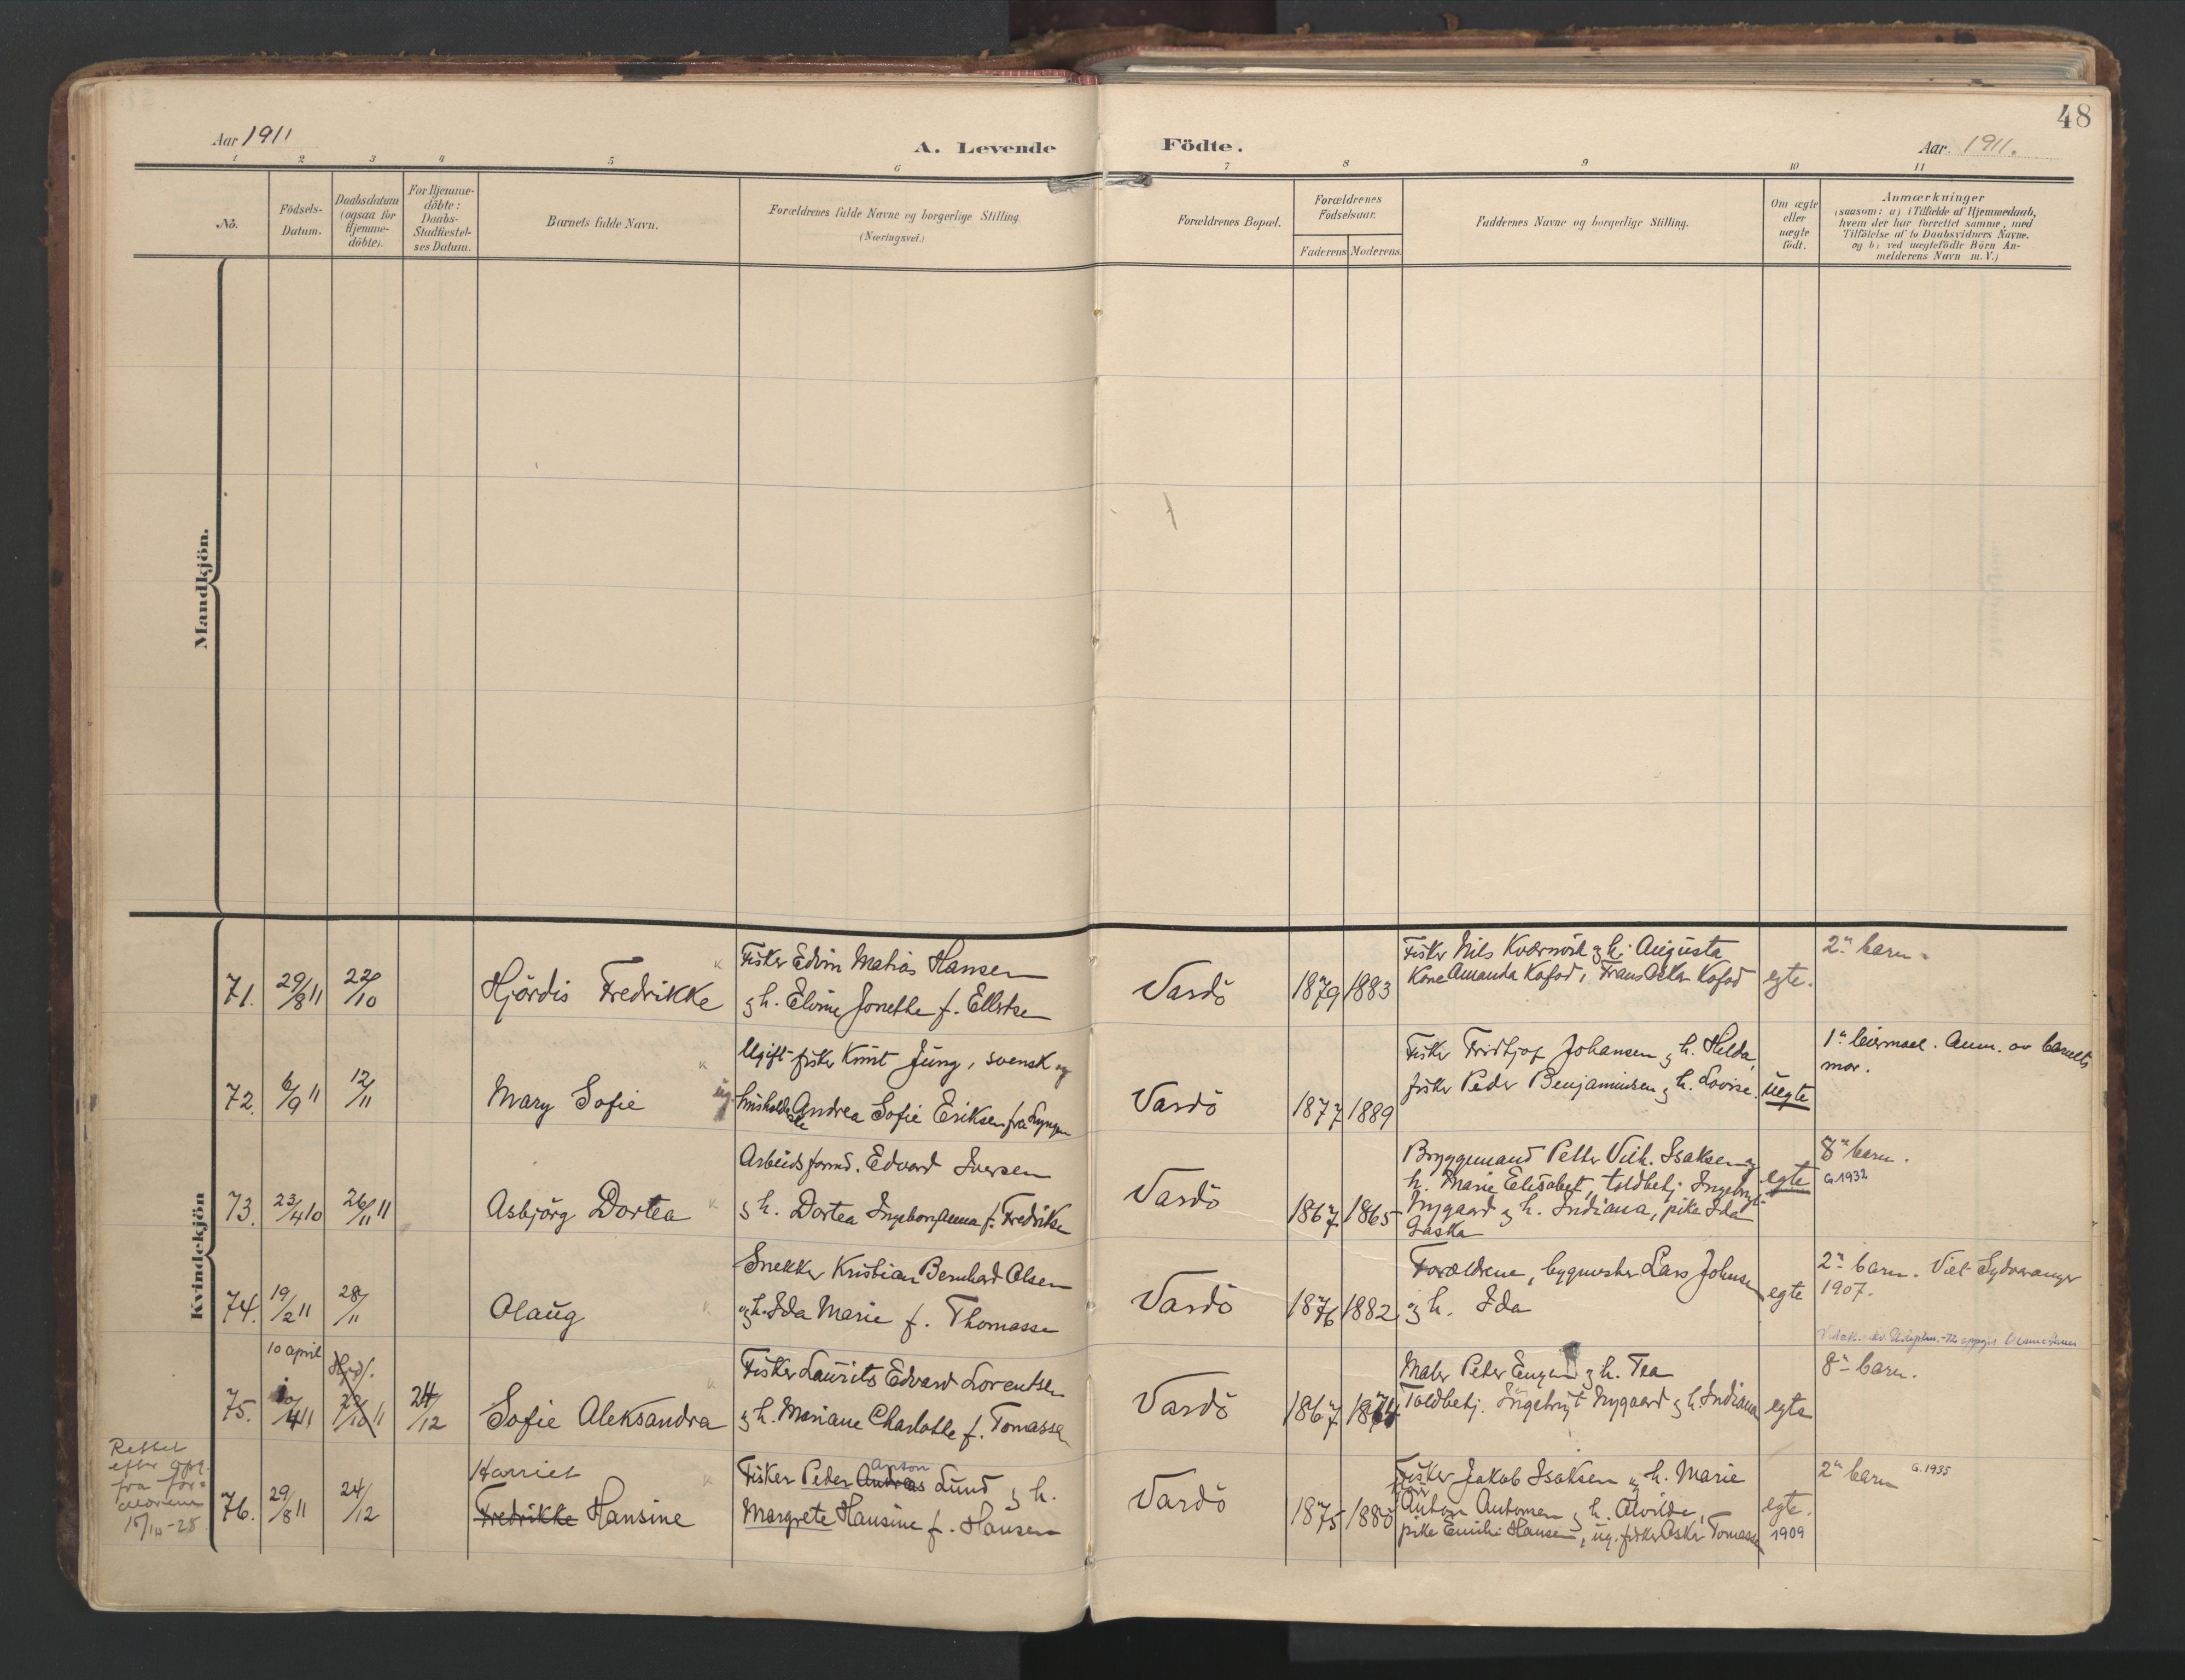 48
Aar 1911
A. Levende Födte.
Aar 1911.
1 2 3 4 5 6 7 8 9 10 11
No.
Födsels-
Datum.
Daabsdatum
(ogsaa for
Hjemme-
döbte).
For Hjemme-
döbte:
Daabs-
Stadfæstel-
ses Datum.
Barnets fulde Navn.
Forældrenes fulde Navne og borgerlige Stilling
(Næringsvei.)
Forældrenes Bopæl.
Forældrenes
Födselsaar.
Faderens Moderens
Faddernes Navne og borgerlige Stilling.
Om ægte
eller
uægte
födt.
Anmærkninger
(saasom: a) i Tilfælde af Hjemmedaab,
hvem der har forrettet samme, med
Tilföielse af to Daabsvidners Navne.
og b) ved uægtefödte Börn An-
melderens Navn m. V.)
Mandkjön.
Kvindekjön
71. 29/8 11 22/10
Hjördis Fredrikke
Fisker Edvin Matias Hansen
g h. Elvine Jonette f. Ellertsen
Vardö
1879 1883
Fisker Nils Kvernvik g h. Augusta
Kone Amanda Kofod, Frans Oskar Kofod
egte.
2n barn.
72. 6/9 11 12/11
Mary Sofie
Ugift fisker Knut Jung, svensk og
ug. husholderske Andrea Sofie Eriksen fra Lyngen
Vardö
1877 1889
Fisker Fridtjof Johansen g h. Helda,
fisker Peder Benjaminsen g h. Lovise.
uegte
1n leiermaal. Anm. av barnets
mor.
73. 23/4 10 26/11 11
Asbjörg Dortea
Arbeidsformd. Edvard Iversen
g h. Dortea Ingeborg Anna f. Fredriksen
Vardö
1867 1865
Bryggemand Petter Vilh. Isaksen g
h. Marie Elisabet, toldbetj. Ingebrigt
Nygaard g h. Indiana, pike Ida
Gaska
egte
8n barn.
G. 1932
74. 19/2 11 28/11
Olaug
Snekker Kristian Bernhard Olsen
g h. Ida Marie f. Thomassen
Vardö
1876 1882
Forældrene, bygmester Lars Johnsen
og h. Ida
egte
2n barn. Viet Sydvaranger
1907.
75. 10 april
10/4 11 24/12
Sofie Aleksandra
Fisker Laurits Edvard Lorentsen
g h. Mariane Charlotte f. Tomassen
Vardö
1867 1874
Maler Peter Eugen g h. Tea
Toldbetj. Ingebrigt Nygaard g h. Indiana
egte
8n barn.
Rettet
efter opg.
fra for-
ældrene
15/10-28.
76. 29/8 11 24/12
Harriet
Fredrikke Hansine
Anton
Fisker Peder Andreas Lund g h.
Margrete Hansine f. Hansen
Vardö
1875 1880
Fisker Jakob Isaksen g h. Marie
Anton Antonsen g h. Alvilde,
pike Emilie Hansen, ug. fisker Oskar Tomassen
egte.
1909
2n barn G. 1935